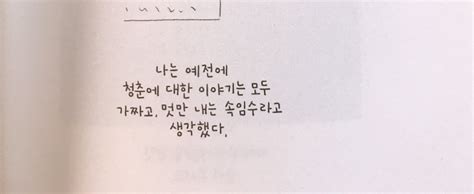 나는 예전에
청춘에 대한 이야기는 모두
가짜고, 멋만 내는 속임수라고
생각했다.